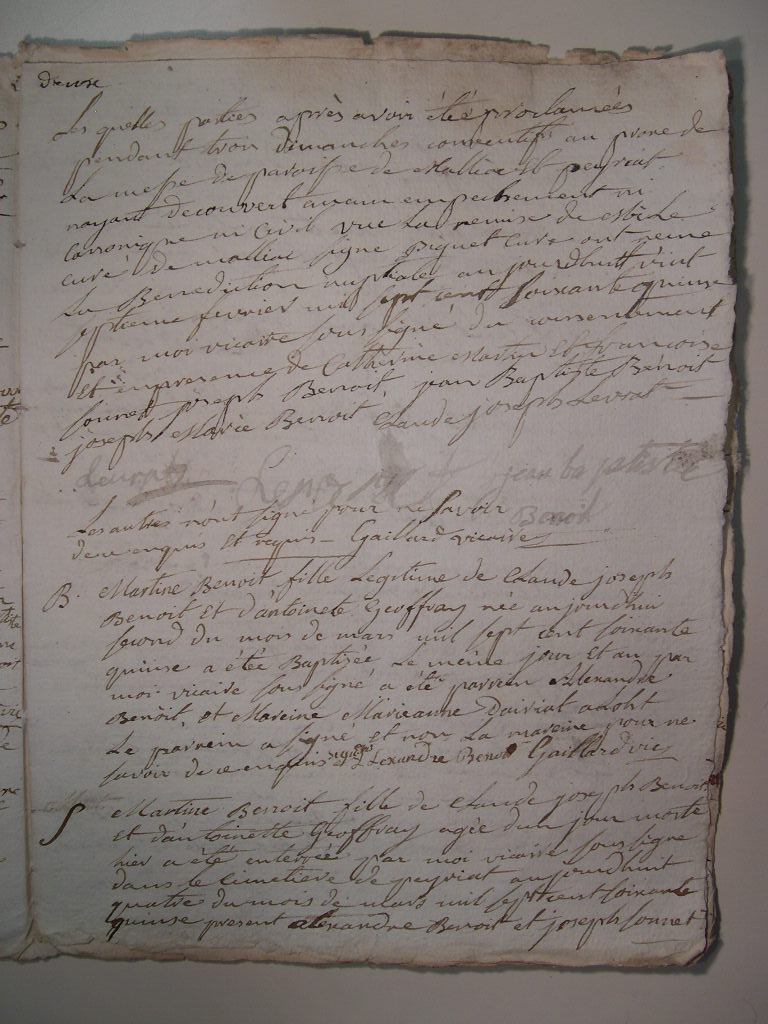 douse
Les quelles parties après avoir été proclamées
pendant trois dimanches consecutifs au prone de
La messe de paroisse de Malliac Et peyriat
nayant decouvert aucun empechement ni
Cannonique ni Civil vue La remise de Mr Le
curé de malliac signé Piquet Curé ont recue
La Benediction nuptiale aujourdhuit vint
septieme fevrier mil sept cent soixante quinse
par moi vicaire sous signé du consentement
Et en presence de Catherine Martin Et francoise
sonnet joseph Benoit, jean Baptiste Bénoit
joseph Marie Benoit, Claude joseph Levrat
Levrat jean baptiste
Benoit
Les autres n'ont signé pour ne savoir
de ce enquis Et requis - Gaillard vicaire
B. Martine Benoit fille Legitime de Claude joseph
Benoit Et d'antoinete Geoffray née aujourdhui
second du mois de mars mil sept cent soixante
quinse a étée Baptisée Le même jour Et an par
moi vicaire sous signé a été parrein Alexandre
Benoit, et Mareine Marieanne Dairiat adont
Le parrein a signé et non La mareine pour ne
savoir de ce enquis requise Alexandre Benoit Gaillard vic
S Martine Benoit fille de Claude joseph Benoit
Et d'antoinette Geoffray agée d'un jour morte
hier a été enterrée par moi vicaire sous signé
dans le Cimetiere de peyriat aujourdhuit
quatre du mois de mars mil sept cent soixante
quinse present alexandre Benoit et joseph sonnet